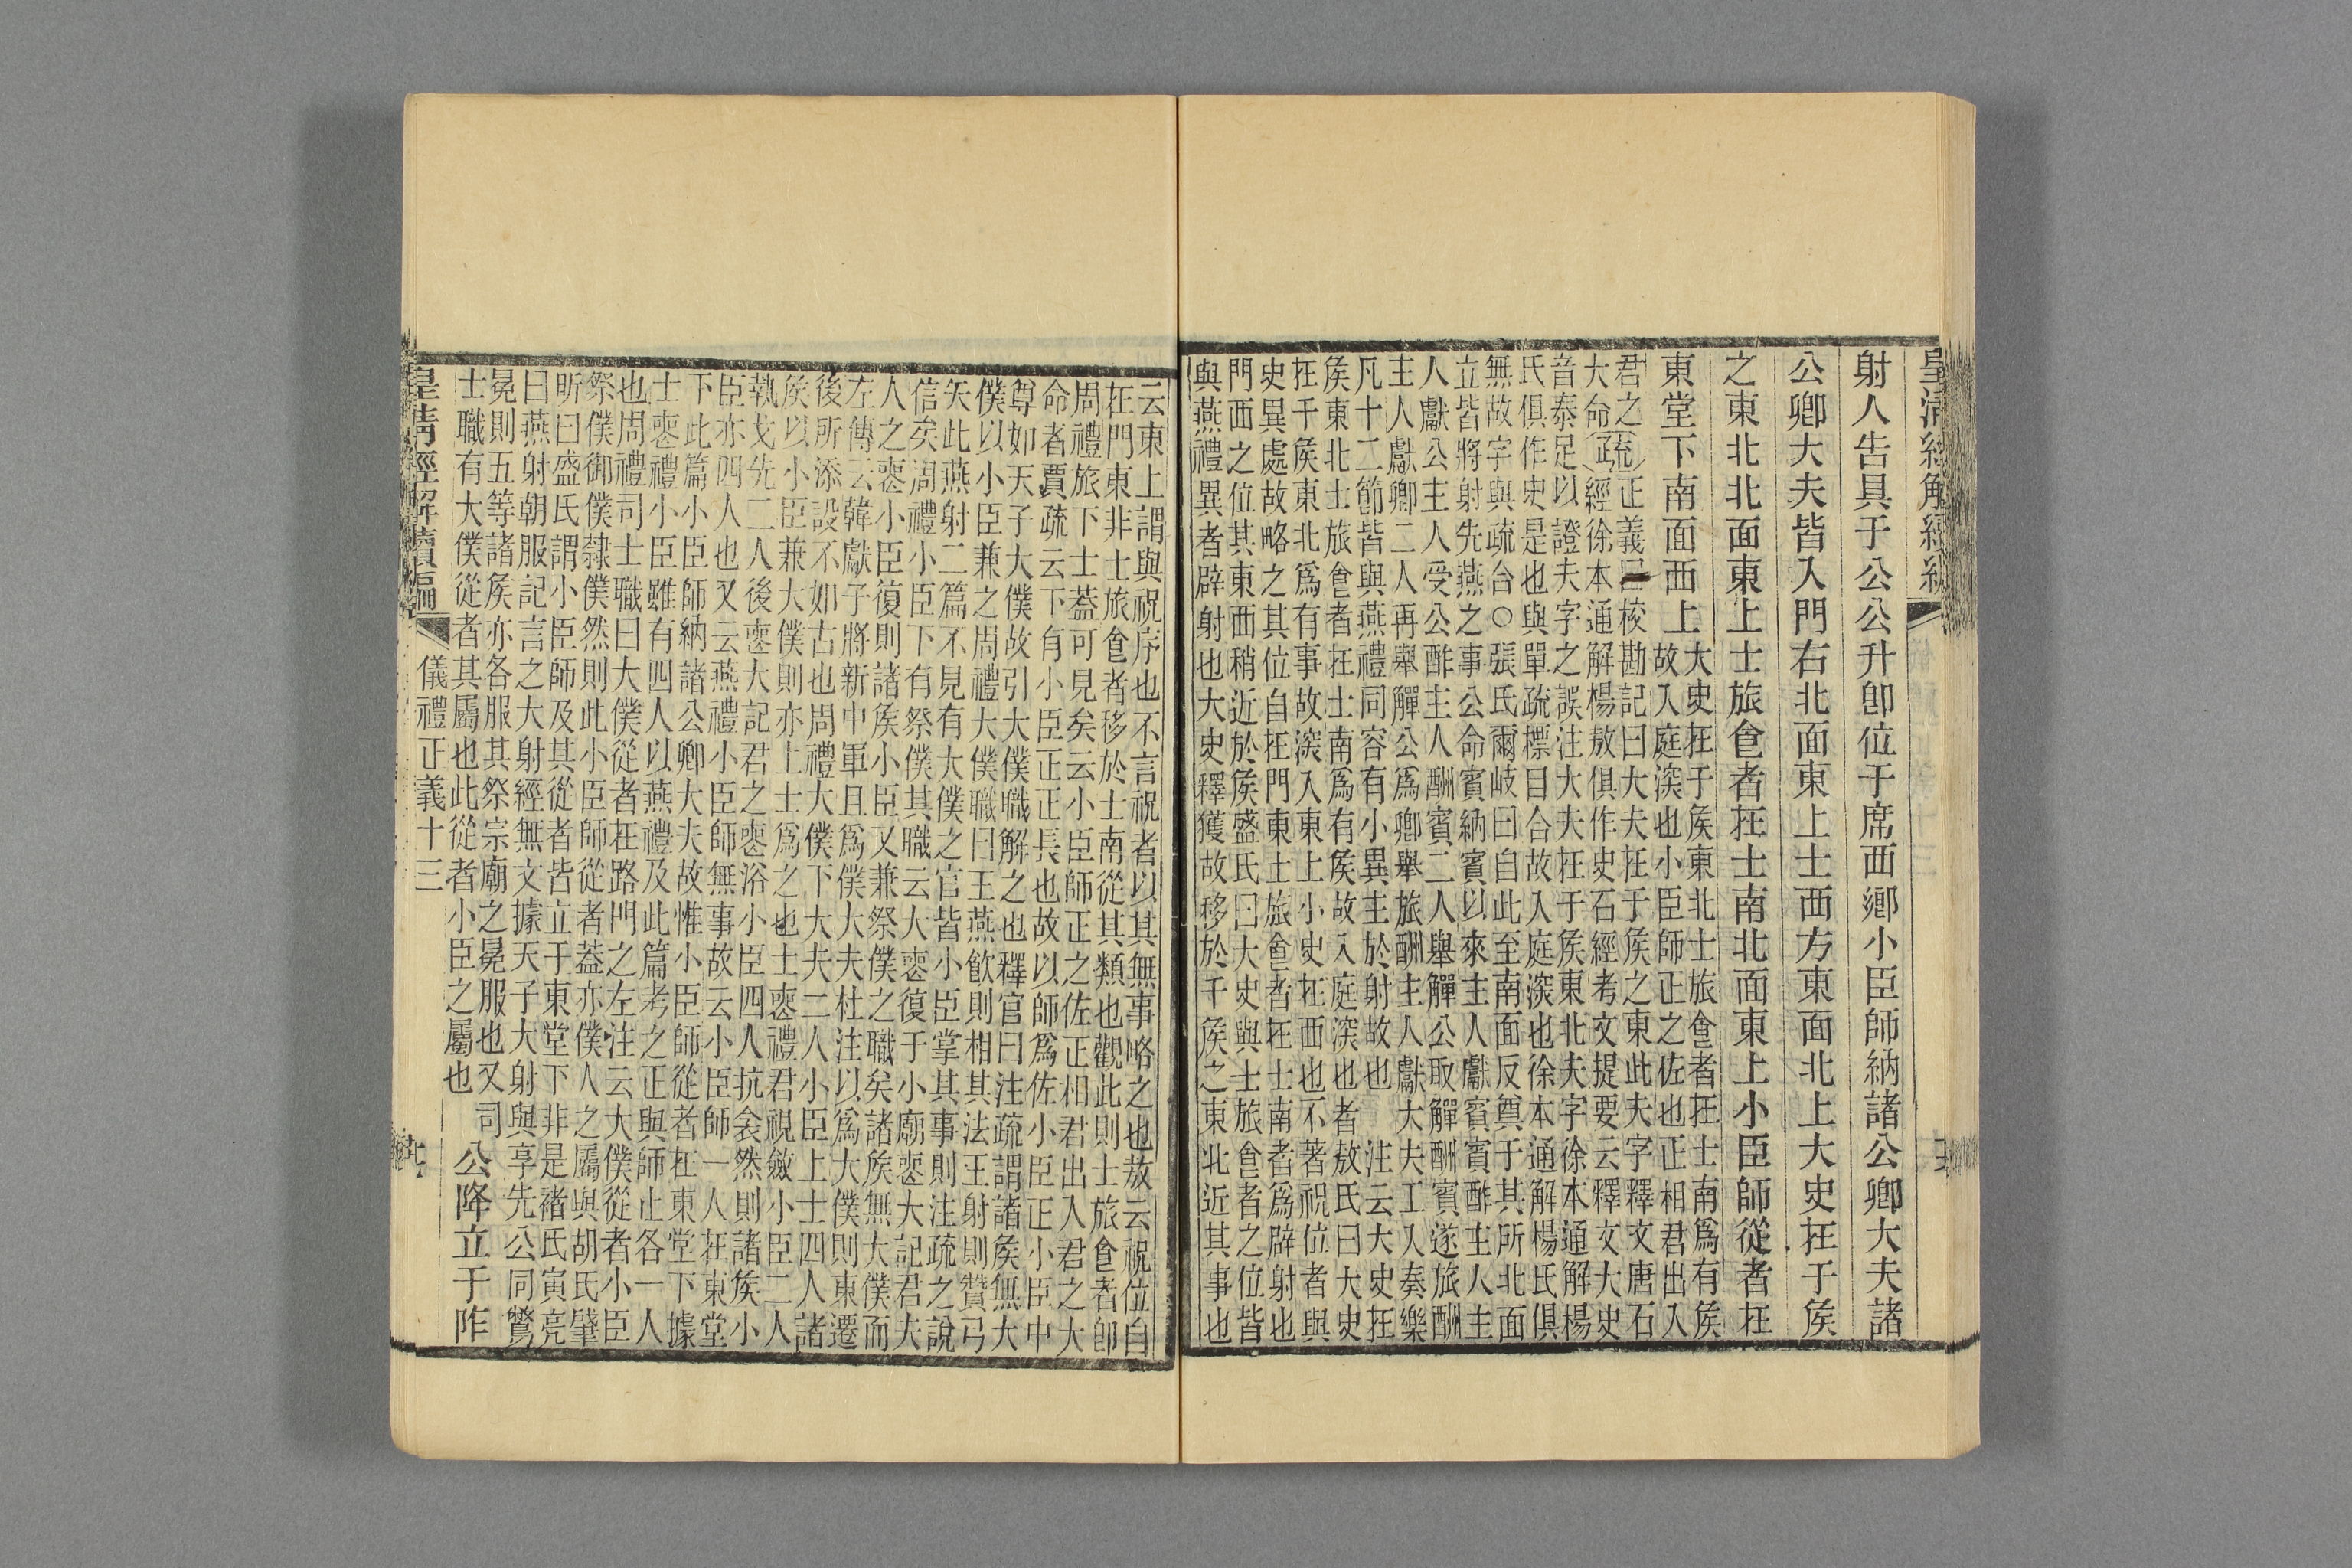 皇清經解續編
射人告具于公公升卽位于席西鄉小臣師納諸公卿大夫諸
公卿大夫皆入門右北面東上士西方東面北上大史在于侯
之東北北面東上士旅食者在士南北面東上小臣師從者在
東堂下南面西上
大史在于侯東北士旅食者在士南爲有侯
故入庭深也小臣師正之佐也正相君出入
君之
大命
疏
正義曰校勘記曰大夫在于侯之東此夫字釋文唐石
經徐本通解楊敖俱作史石經考文提要云釋文大史
音泰足以證夫字之誤注大夫在于侯東北夫字徐本通解楊
氏俱作史是也與單疏標目合故入庭深也徐本通解楊氏俱
無故字與疏合○張氏爾岐曰自此至南面反奠于其所北面
立皆將射先燕之事公命賓納賓以來主人獻賓賓酢主人主
人獻公主人受公酢主人酬賓二人舉觶公取觶酬賓遂旅酬
主人獻卿二人再舉觶公爲卿舉旅酬主人獻大夫工入奏樂
凡十二節皆與燕禮同容有小異主於射故也　注云大史在
侯東北士旅食者在士南爲有侯故入庭深也者敖氏曰大史
在干侯東北爲有事故深入東上小史在西也不著祝位者與
史異處故略之其位自在門東士旅食者在士南者爲辟射也
門西之位其東西稍近於侯盛氏曰大史與士旅食者之位皆
與燕禮異者辟射也大史釋獲故移於干侯之東北近其事也
云東上謂與祝序也不言祝者以其無事略之也敖云祝位自
在門東非士旅食者移於士南從其類也觀此則士旅食者卽
周禮旅下士蓋可見矣云小臣師正之佐正相君出入君之大
命者賈疏云下有小臣正正長也故以師爲佐小臣正小臣中
尊如天子大僕故引大僕職解之也釋官曰注疏謂諸侯無大
僕以小臣兼之周禮大僕職曰王燕飮則相其法王射則贊弓
矢此燕射二篇不見有大僕之官皆小臣掌其事則注疏之說
信矣周禮小臣下有祭僕其職云大喪復于小廟喪大記君夫
人之喪小臣復則諸侯小臣又兼祭僕之職矣諸侯無大僕而
左傳云韓獻子將新中軍且爲僕大夫杜注以爲大僕則東遷
後所添設不如古也周禮大僕下大夫二人小臣上士四人諸
侯以小臣兼大僕則亦上士爲之也士喪禮君視斂小臣二人
執戈先二人後喪大記君之喪浴小臣四人抗衾然則諸侯小
臣亦四人也又云燕禮小臣師無事故云小臣師一人在東堂
下此篇小臣師納諸公卿大夫故惟小臣師從者在東堂下據
士喪禮小臣雖有四人以燕禮及此篇考之正與師止各一人
也周禮司士職曰大僕從者在路門之左注云大僕從者小臣
祭僕御僕隸僕然則此小臣師從者蓋亦僕人之屬與胡氏肇
昕曰盛氏謂小臣師及其從者皆立于東堂下非是褚氏寅亮
曰燕射朝服記言之大射經無文據天子大射與享先公同鷩
冕則五等諸侯亦各服其祭宗廟之冕服也又司
士職有大僕從者其屬也此從者小臣之屬也
公降立于阼
皇清經解續編
儀禮正義十三